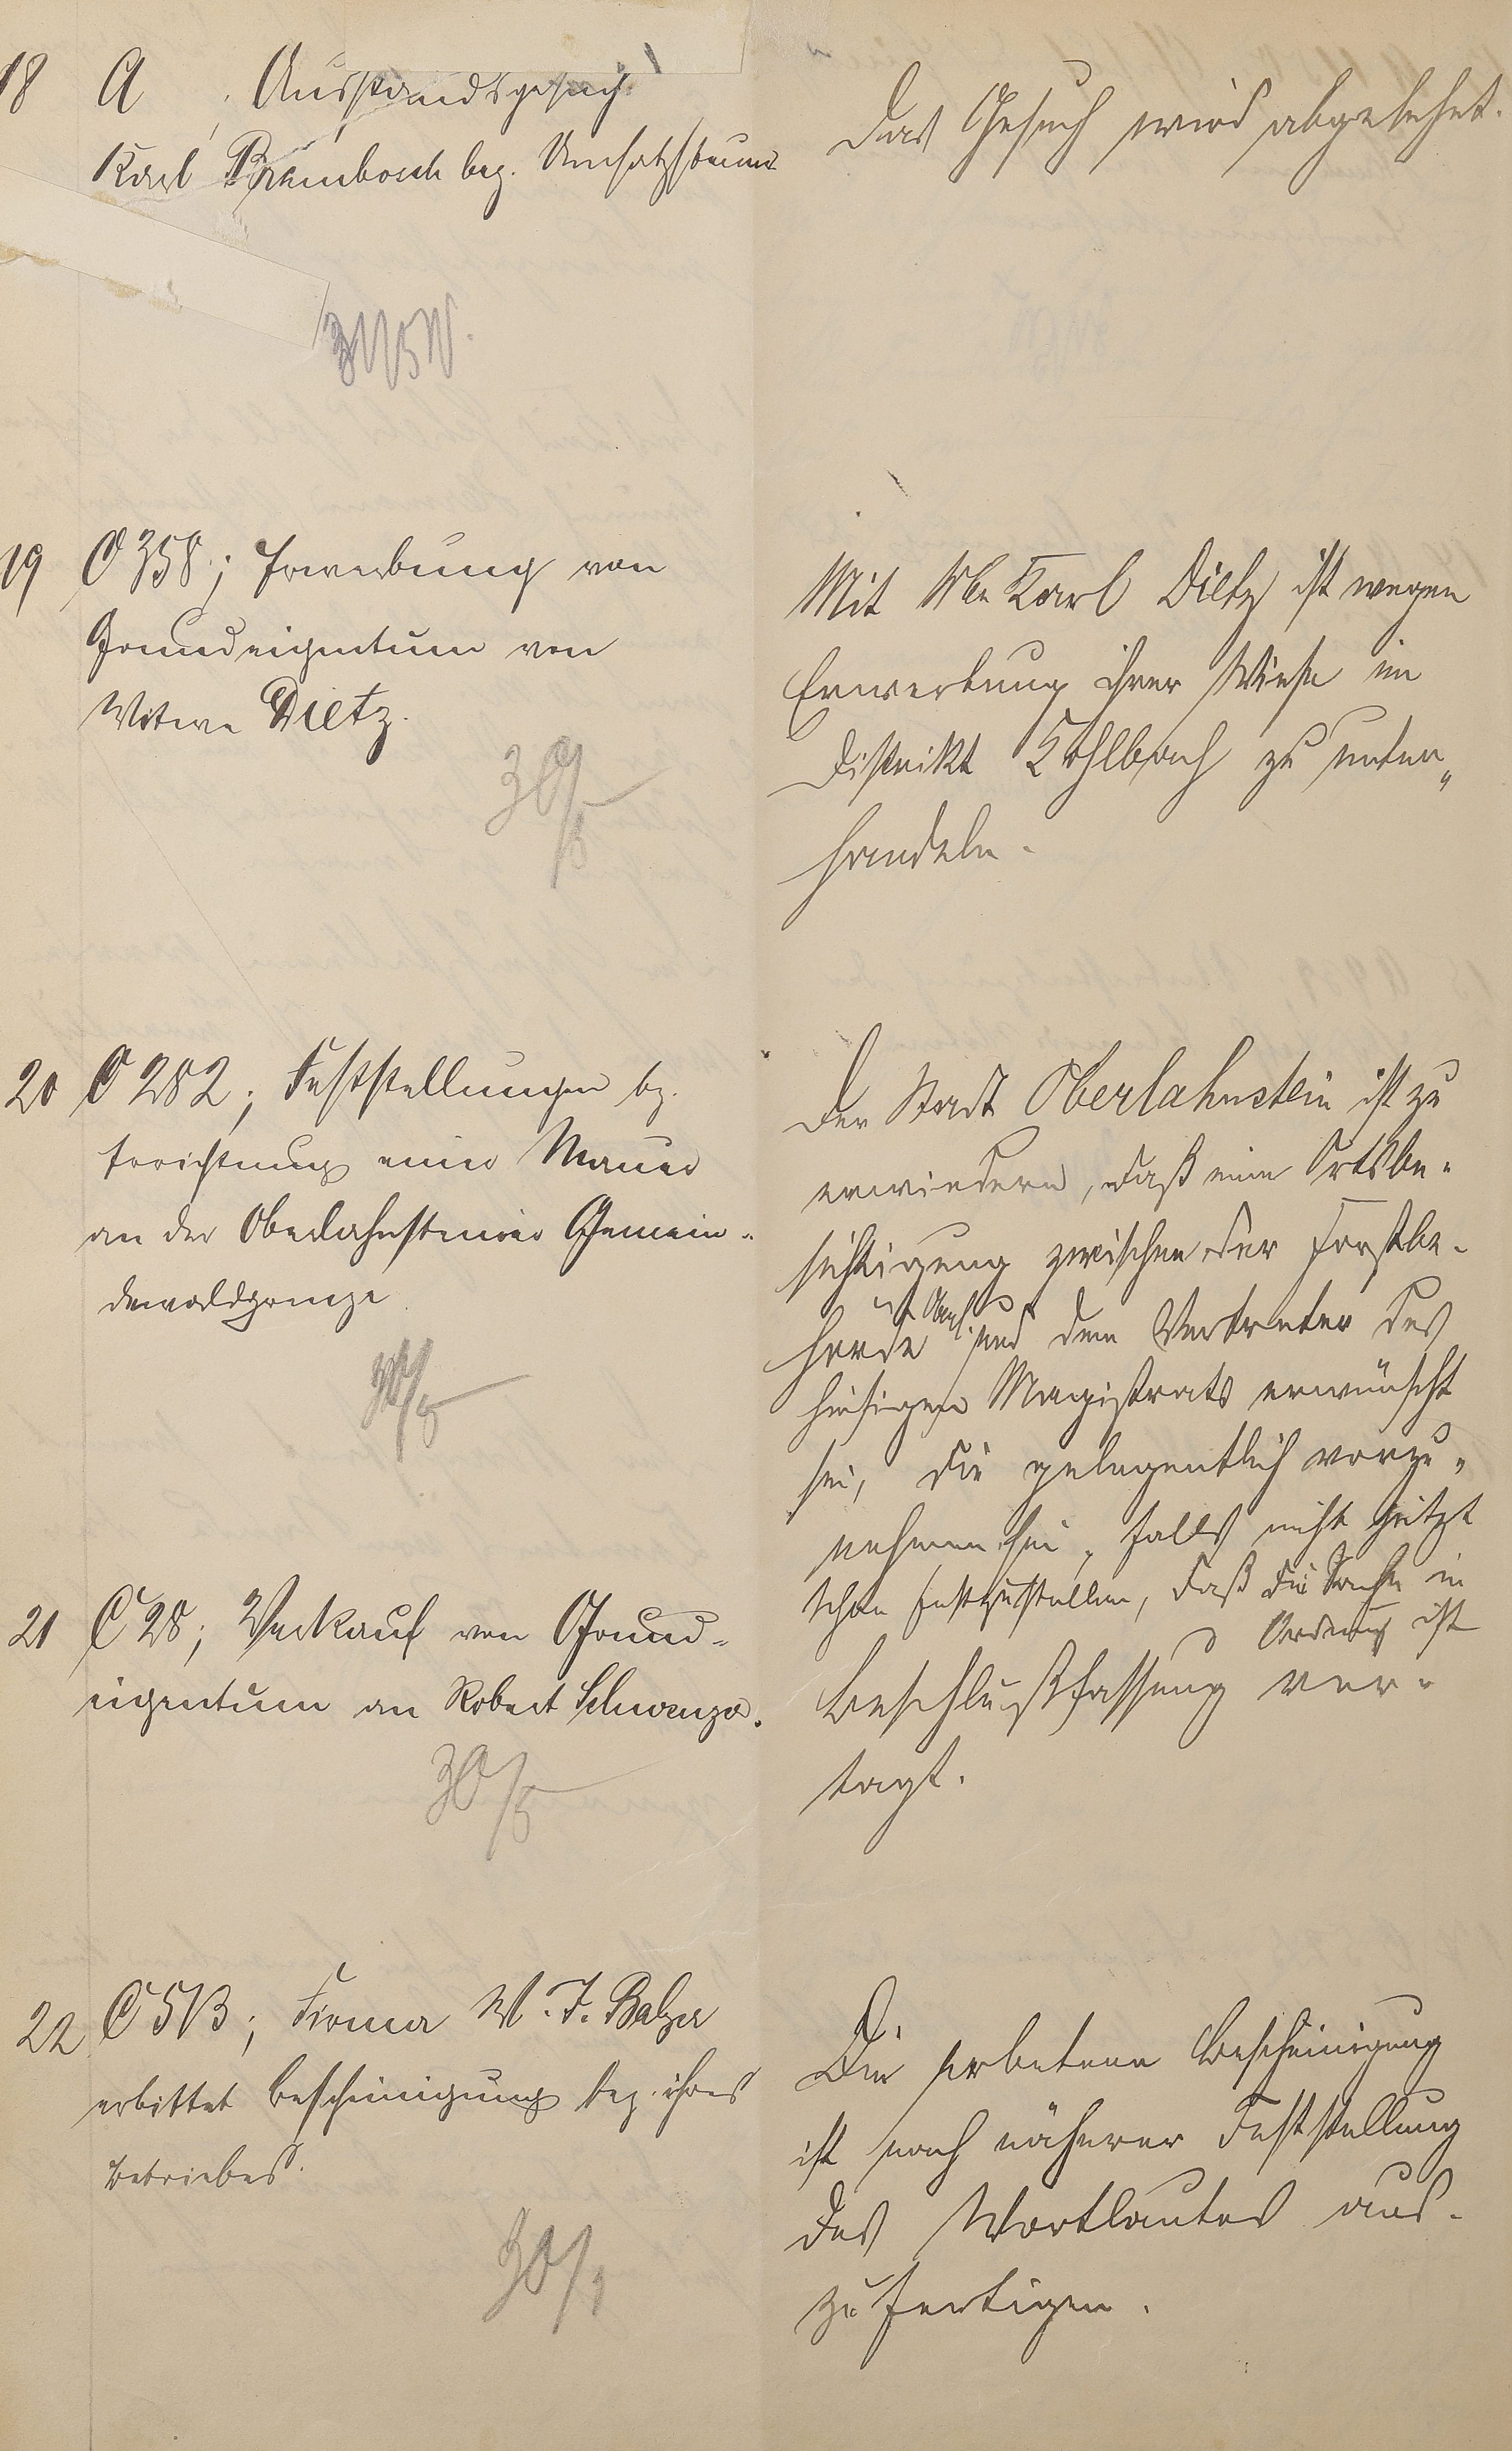 18 A , Ausstandsgesuch
Karl Brembosch bez. Umsatzsteuer
Das Gesuch wird abgelehnt.
19 C 358; Erwerbung von
Grundeigentum von
Witwe Dietz.
30/5
Mit Wwe Karl Dietz ist wegen
Erwerbung ihrer Wiese im
Distrikt Kohlbach zu unter„
handeln.
20 C 282; Feststellungen bez.
Errichtung einer Mauer
an der Oberlahnsteiner Gemein-
dewaldgrenze
30/5
Der Stadt Oberlahnstein ist zu
erwiedern, daß eine Ortsbe-
sichtigung zwischen der Forstbe-
hörde und dem Vertreter des
hiesigen Magistrats erwünscht
sei, die gelegentlich vorzu„
nehmen sei, falls nicht jetzt
schon festzustellen, daß die Sache in
Ordnung ist
21 C 28; Verkauf von Grund-
eigentum an Robert Schwenzer.
30/5
Beschlußfassung ver-
tagt.
22 C 513; Firma W. F. Balzer
erbittet Bescheinigung bez. ihres
Betriebes.
30/5
Die erbetene Bescheinigung
ist nach näherer Feststellung
des Wortlautes aus-
zufertigen.